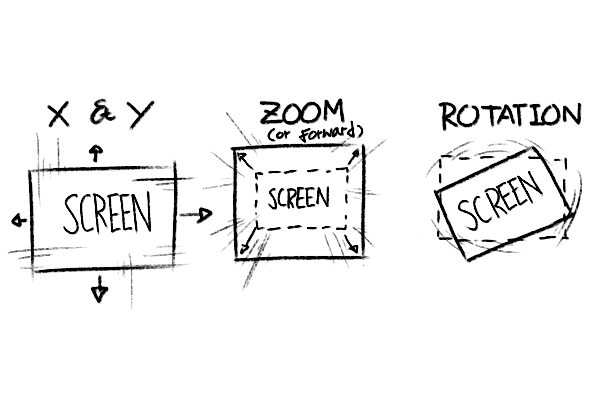 X & Y
SCREEN
ZOOM
(or Forward)
SCREEN
ROTATION
SCREEN